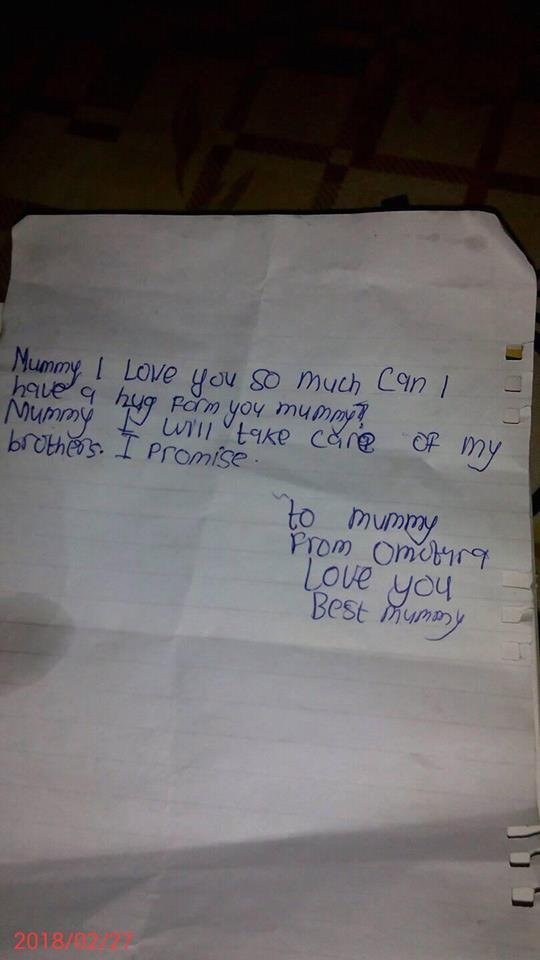 Mummy I Love you so much Can I
have a hug form you mummy?
Mummy I will take care of my
brothers. I Promise.
to mummy
From Omotyra
Love you
Best mummy
2018/02/27